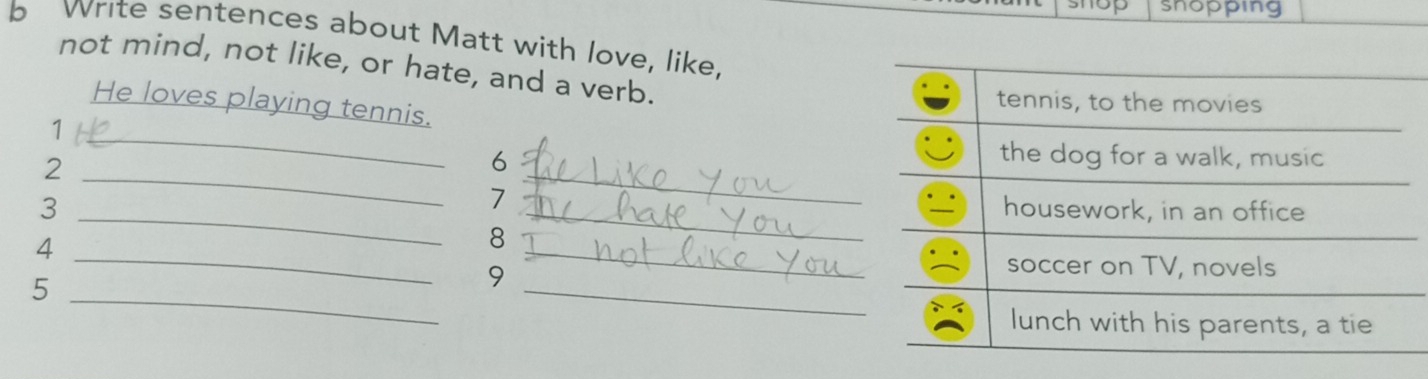 shop shopping
b Write sentences about Matt with love, like,
not mind, not like, or hate, and a verb.
He loves playing tennis.
1 He
2
3
4
5
6 he like you
7 he hate you
8 I not like you
9
tennis, to the movies
the dog for a walk, music
housework, in an office
soccer on TV, novels
lunch with his parents, a tie